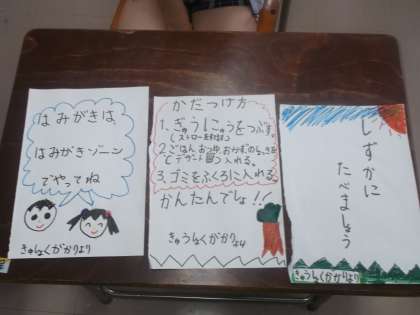 はみがきは、
はみがきゾーン
でやってね
きゅうしょくがかりより
かたづけ方
1.ぎゅうにゅうをつぶす。
(ストローをわける)
2.ごはん、おつゆ、おかずの
入れる。
3.ゴミをふくろに入れる。
かんたんでしょ!!
きゅうしょくがかりより
しずかに
たべましょう
きゅうしょくがかりより